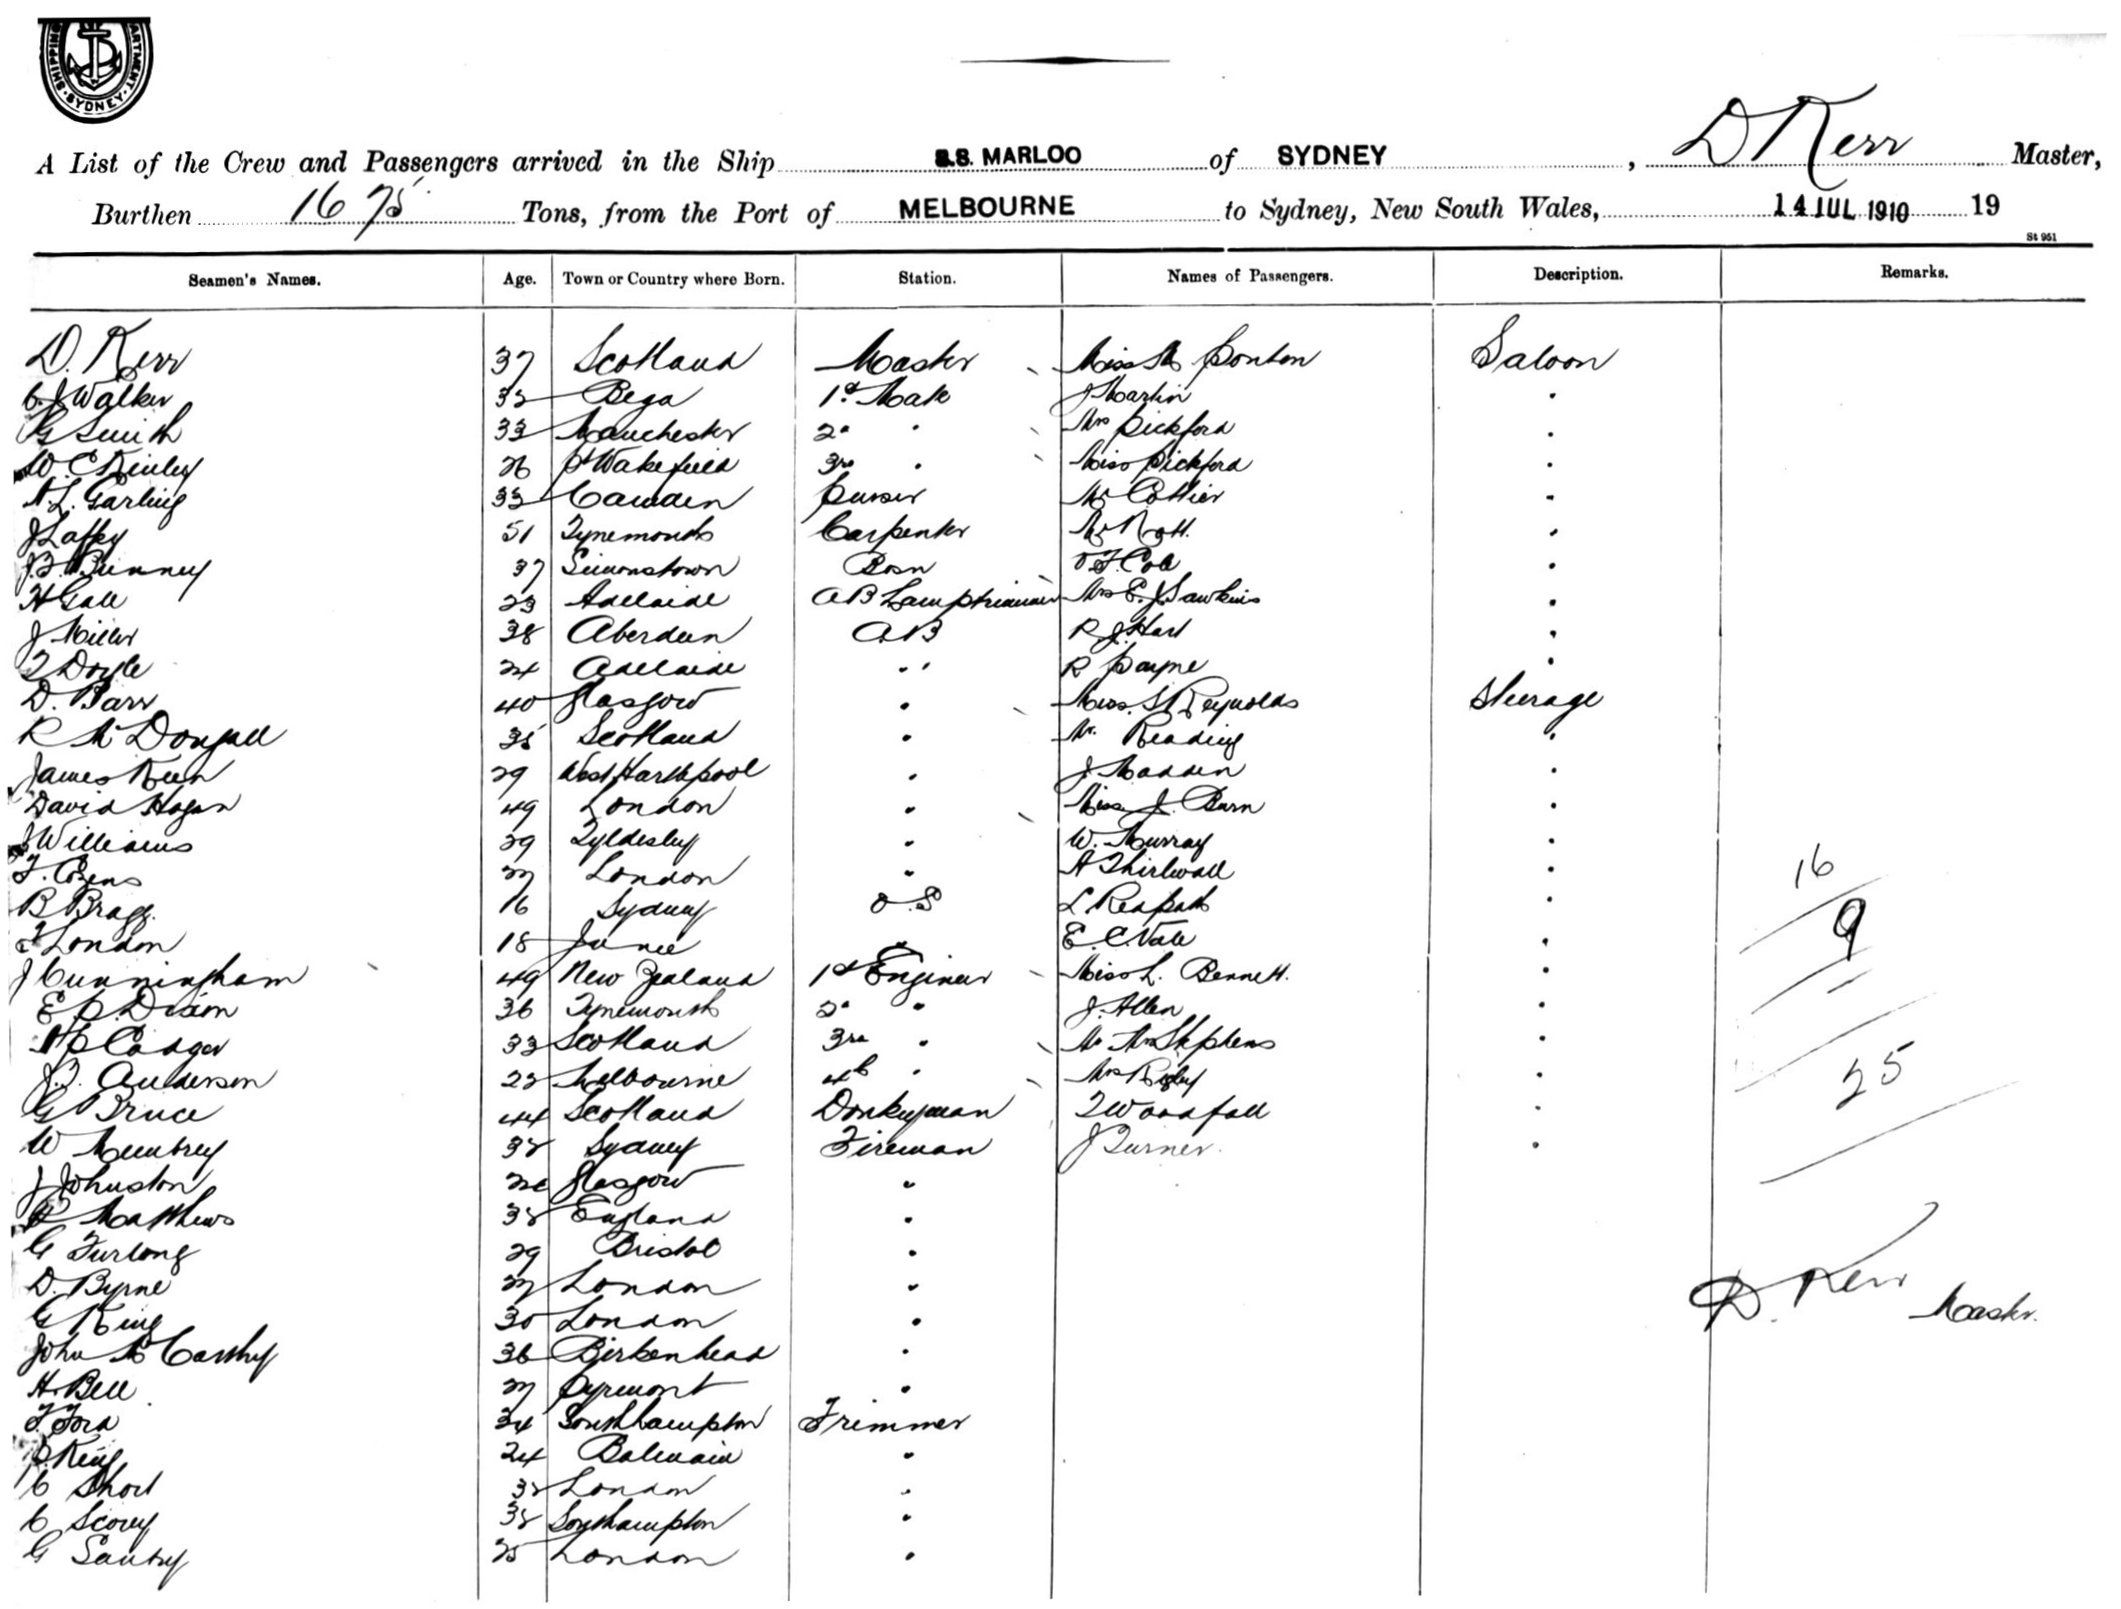 SHIPPING DEPARTMENT SYDNEY
A List of the Crew and Passengers arrived in the Ship S.S. MARLOO of SYDNEY, D Kerr Master,
Burthen 1675 Tons, from the Port of MELBOURNE to Sydney, New South Wales, 14 JUL 1910 19
St 951
Seamen's Names. Age. Town or Country where Born. Station. Names of Passengers. Description. Remarks.
D. Kerr 37 Scotland Master Miss M Ponton Saloon
C. J Walker Bega 1st Mate J Martin "
G Smith 33 Manchester 2d " Mrs Pickford "
W. C Kinley 26 Pt Wakefield 3rd " Miss Pickford "
A L. Garling 33 Camden Purser Mr Collier "
J Laffey 51 Tynemouth Carpenter Mr Nott. "
J. B. Bunney 37 Simonstown Bosn F. Cole "
H Gall 23 Adelaide AB Lamptrimmer Mrs E. J Hawkins "
J Miller 38 Aberdeen AB R J. Hart "
T Doyle 24 Adelaide " R Payne "
D. Barr 40 Glasgow " Miss. Reynolds Steerage
R McDougall 35 Scotland " Mr. Reading "
James Keen 29 West Hartlepool " J Madden "
David Hogan 49 London " Miss J. Burn "
J Williams 39 Tyldesley " W. Murray "
F. Cozens 27 London " A Thirlwall "
16
B Bragg. 16 Sydney O.S L Redpath "
9
T London 18 Junee " E. C. Vale "
J Cunningham 49 New Zealand 1st Engineer Miss L. Bennett. "
E P. Dixon 36 Tynemouth 2d " J. Allen "
H P Cadger 33 Scotland 3rd " Mr Mrs Stephens "
25
J. Anderson Melbourne 4th " Mrs Rigby "
G Bruce 44 Scotland Donkeyman T Woodfall "
W Mumbrey 38 Sydney Fireman J Turner. "
J Johnston Glasgow "
Matthews 38 England "
G Furlong 29 Bristol "
D. Byrne 27 London "
D. Kerr Master.
G King 30 London "
John McCarthy 36 Birkenhead "
H. Bell 27 Pyrmont "
F. Ford 34 Southhampton Trimmer
King 24 Balmain "
C Short London "
C Scovey 38 Southampton "
G 25 London "